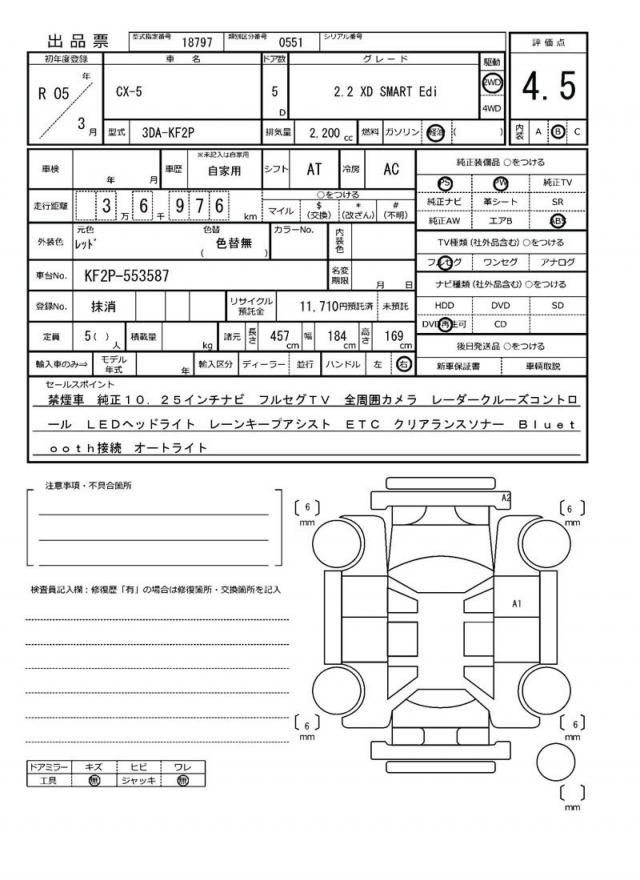 出品票 型式指定番号 18797 類別区分番号 0551 シリアル番号
評価点
4.5
初年度登録 車名 ドア数 グレード 駆動
R 05 年 3 月 CX-5 5 D 2.2 XD SMART Edi 2WD 4WD
型式 3DA-KF2P 排気量 2,200 cc 燃料 ガソリン 軽油 ( ) 内装 A B C
車検 年 月 車歴 ※未記入は自家用 自家用 シフト AT 冷房 AC
走行距離 3 万 6 千 9 7 6 km ○をつける マイル $(交換) *(改ざん) #(不明)
外装色 元色 レッド 色替 ( 色替無 ) カラーNo. 内装色
車台No. KF2P-553587 名変期限 月 日
登録No. 抹消 リサイクル預託金 11,710円預託済 未預託
定員 5( ) 人 積載量 kg 諸元 長さ 457 cm 幅 184 cm 高さ 169 cm
輸入車のみ⇒ モデル年式 年 輸入区分 ディーラー 並行 ハンドル 左 右
純正装備品 ○をつける
PS PW 純正TV
純正ナビ 革シート SR
純正AW エアB ABS
TV種類(社外品含む)○をつける
フルセグ ワンセグ アナログ
ナビ種類(社外品含む)○をつける
HDD DVD SD
DVD再生可 CD
後日発送品 ○をつける
新車保証書 車輌取説
セールスポイント
禁煙車 純正10.25インチナビ フルセグTV 全周囲カメラ レーダークルーズコントロ
ール LEDヘッドライト レーンキープアシスト ETC クリアランスソナー Bluet
ooth接続 オートライト
注意事項・不具合箇所
検査員記入欄:修復歴「有」の場合は修復箇所・交換箇所を記入
ドアミラー キズ ヒビ ワレ
工具 無 ジャッキ 無
A2
[ 6 ] mm
[ 6 ] mm
A1
[ 6 ] mm
[ 6 ] mm
[ ] mm